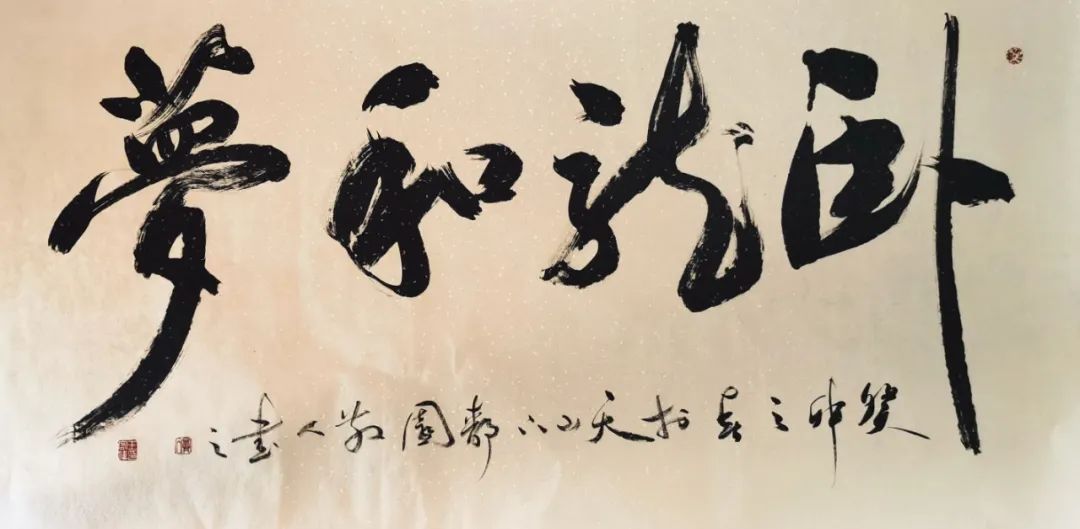 卧龍和夢
癸卯之春於天山下園散人書之